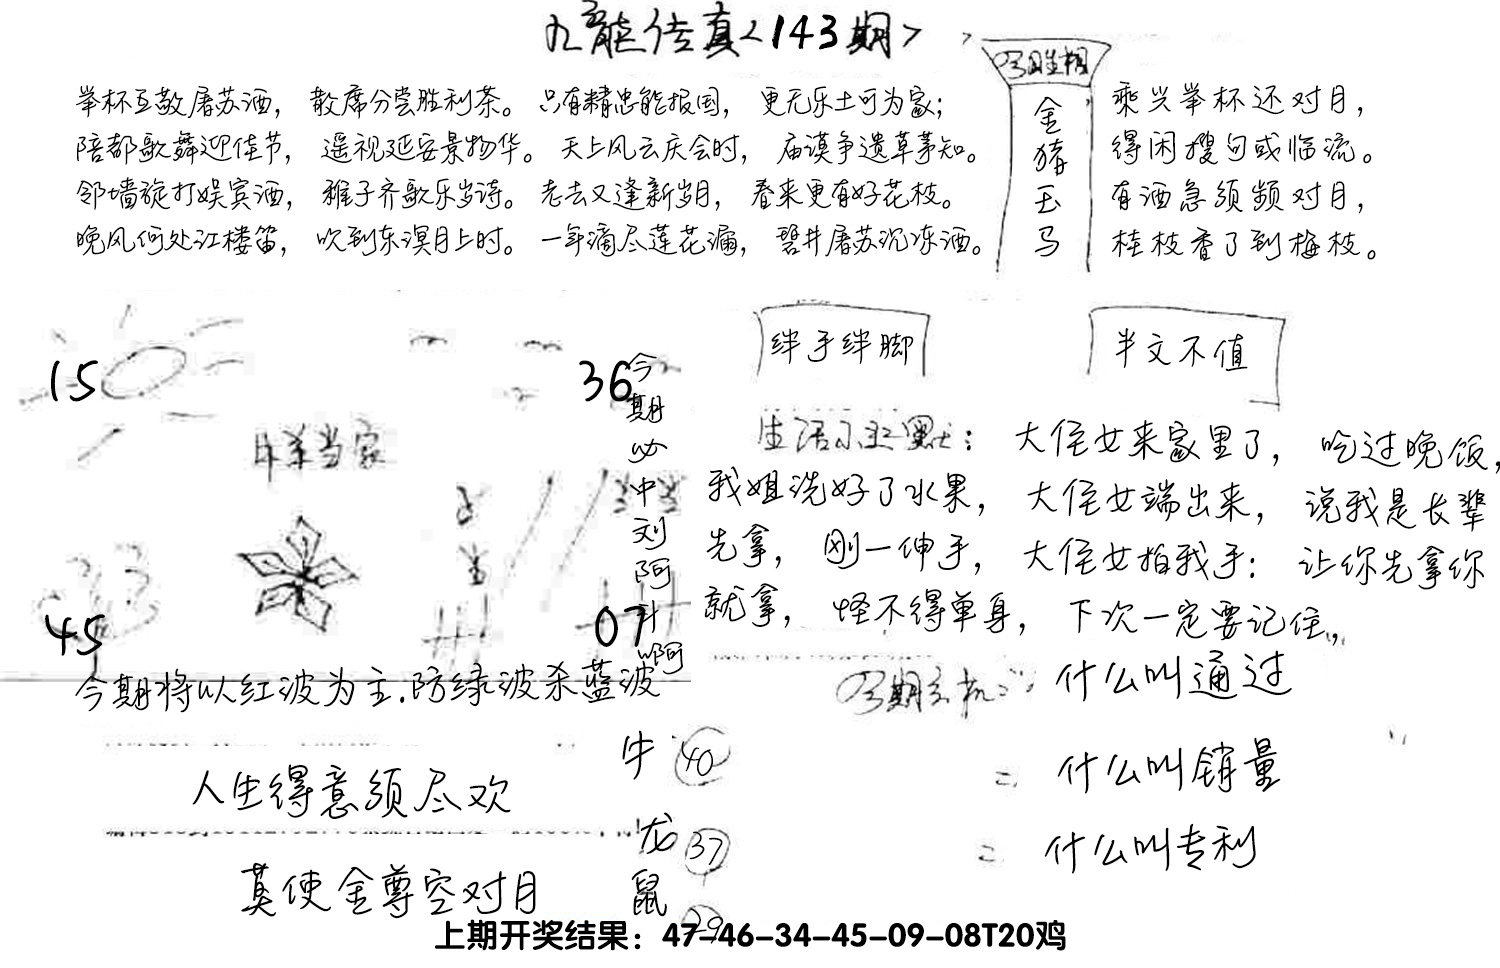 九龙传真<143期>
举杯互敬屠苏酒，散席分尝胜利茶。只有精忠能报国，更无乐土可为家；
陪都歌舞迎佳节，遥视延安景物华。天上风云庆会时，庙谟争遗草茅知。
邻墙旋打娱宾酒，稚子齐歌乐岁诗。老去又逢新岁月，春来更有好花枝。
晚风何处江楼笛，吹到东溟月上时。一年滴尽莲花漏，碧井屠苏沉冻酒。
金
猪
玉
马
乘兴举杯还对月，
得闲搜句或临流。
有酒急须频对月，
桂枝香了到梅枝。
15
36
今期必中刘阿斗啊
当家
45
07
今期将以红波为主.防绿波杀蓝波
绊手绊脚
半文不值
生活小幽默：大侄女来家里了，吃过晚饭，
我姐洗好了水果，大侄女端出来，说我是长辈
先拿，刚一伸手，大侄女拍我手：让你先拿你
就拿，怪不得单身，下次一定要记住，
什么叫通过
什么叫销量
什么叫专利
人生得意须尽欢
莫使金尊空对月
牛 40
龙 37
鼠 29
上期开奖结果：47-46-34-45-09-08T20鸡